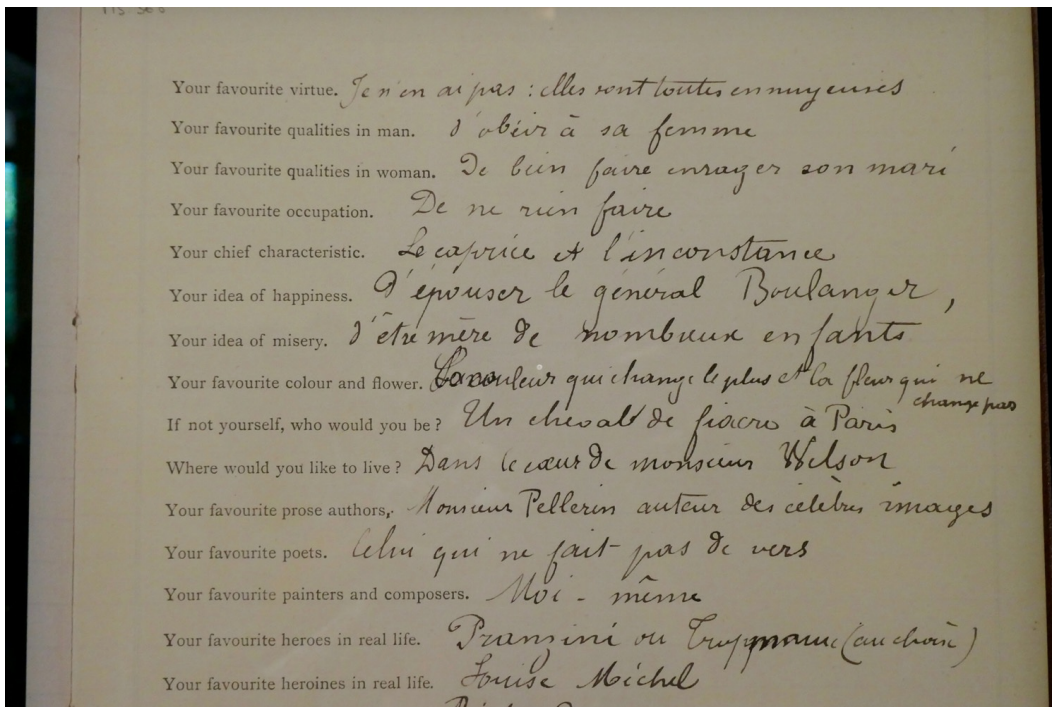 MS 366
Your favourite virtue. Je n'en ai pas : elles sont toutes ennuyeuses
Your favourite qualities in man. d'obéir à sa femme
Your favourite qualities in woman. De bien faire enrager son mari
Your favourite occupation. De ne rien faire
Your chief characteristic. Le caprice et l'inconstance
Your idea of happiness. D'épouser le général Boulanger,
Your idea of misery. d'être mère de nombreux enfants
Your favourite colour and flower. La couleur qui change le plus et la fleur qui ne
change pas
If not yourself, who would you be ? Un cheval de fiacre à Paris
Where would you like to live ? Dans le cœur de monsieur Wilson
Your favourite prose authors. Monsieur Pellerin auteur des célèbres images
Your favourite poets. Celui qui ne fait pas de vers
Your favourite painters and composers. Moi - même
Your favourite heroes in real life. Pranzini ou Troppmann (au choix)
Your favourite heroines in real life. Louise Michel